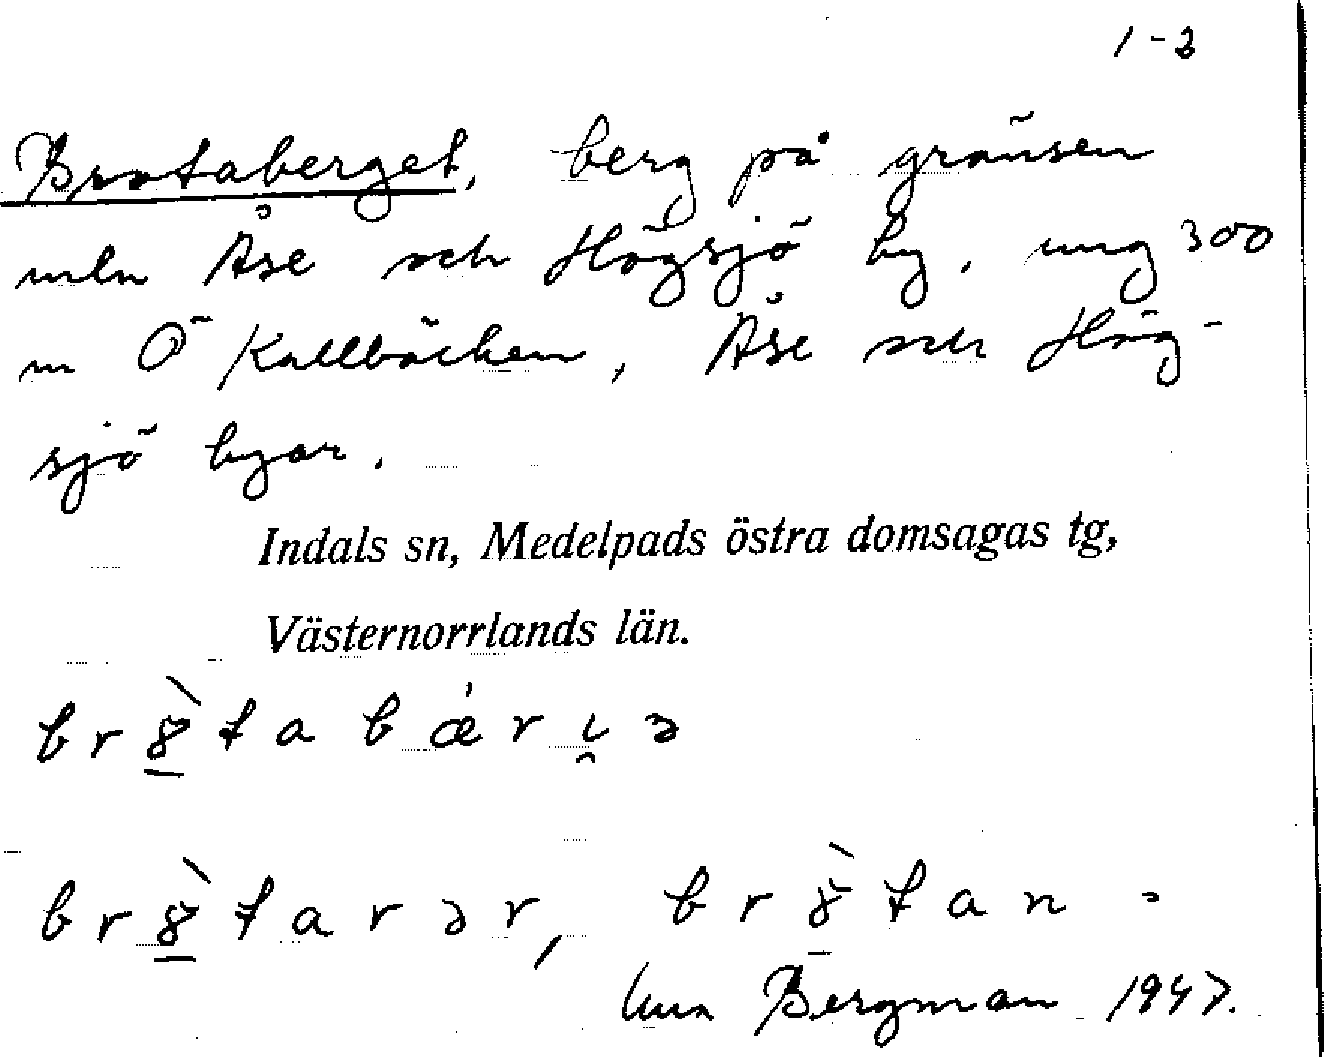 1-2
Brotaberget, berg på gränsen
mln Åse och Högsjö by, ung 300
m Ö Kallbäcken, Åse och Hög-
sjö byar.
Indals sn, Medelpads östra domsagas tg,
Västernorrlands län.
Bergman 1947.